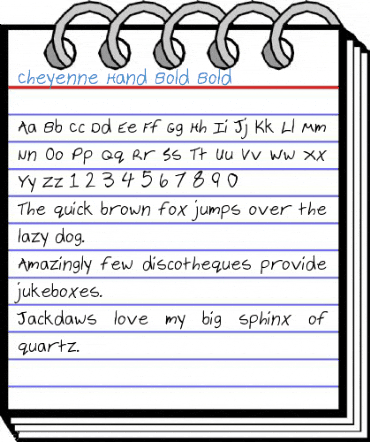 Cheyenne Hand Bold Bold
Aa Bb Cc Dd Ee Ff Gg Hh Ii Jj Kk Ll Mm
Nn Oo Pp Qq Rr Ss Tt Uu Vv Ww Xx
Yy Zz 1 2 3 4 5 6 7 8 9 0
The quick brown fox jumps over the
lazy dog.
Amazingly few discotheques provide
jukeboxes.
Jackdaws love my big sphinx of
quartz.